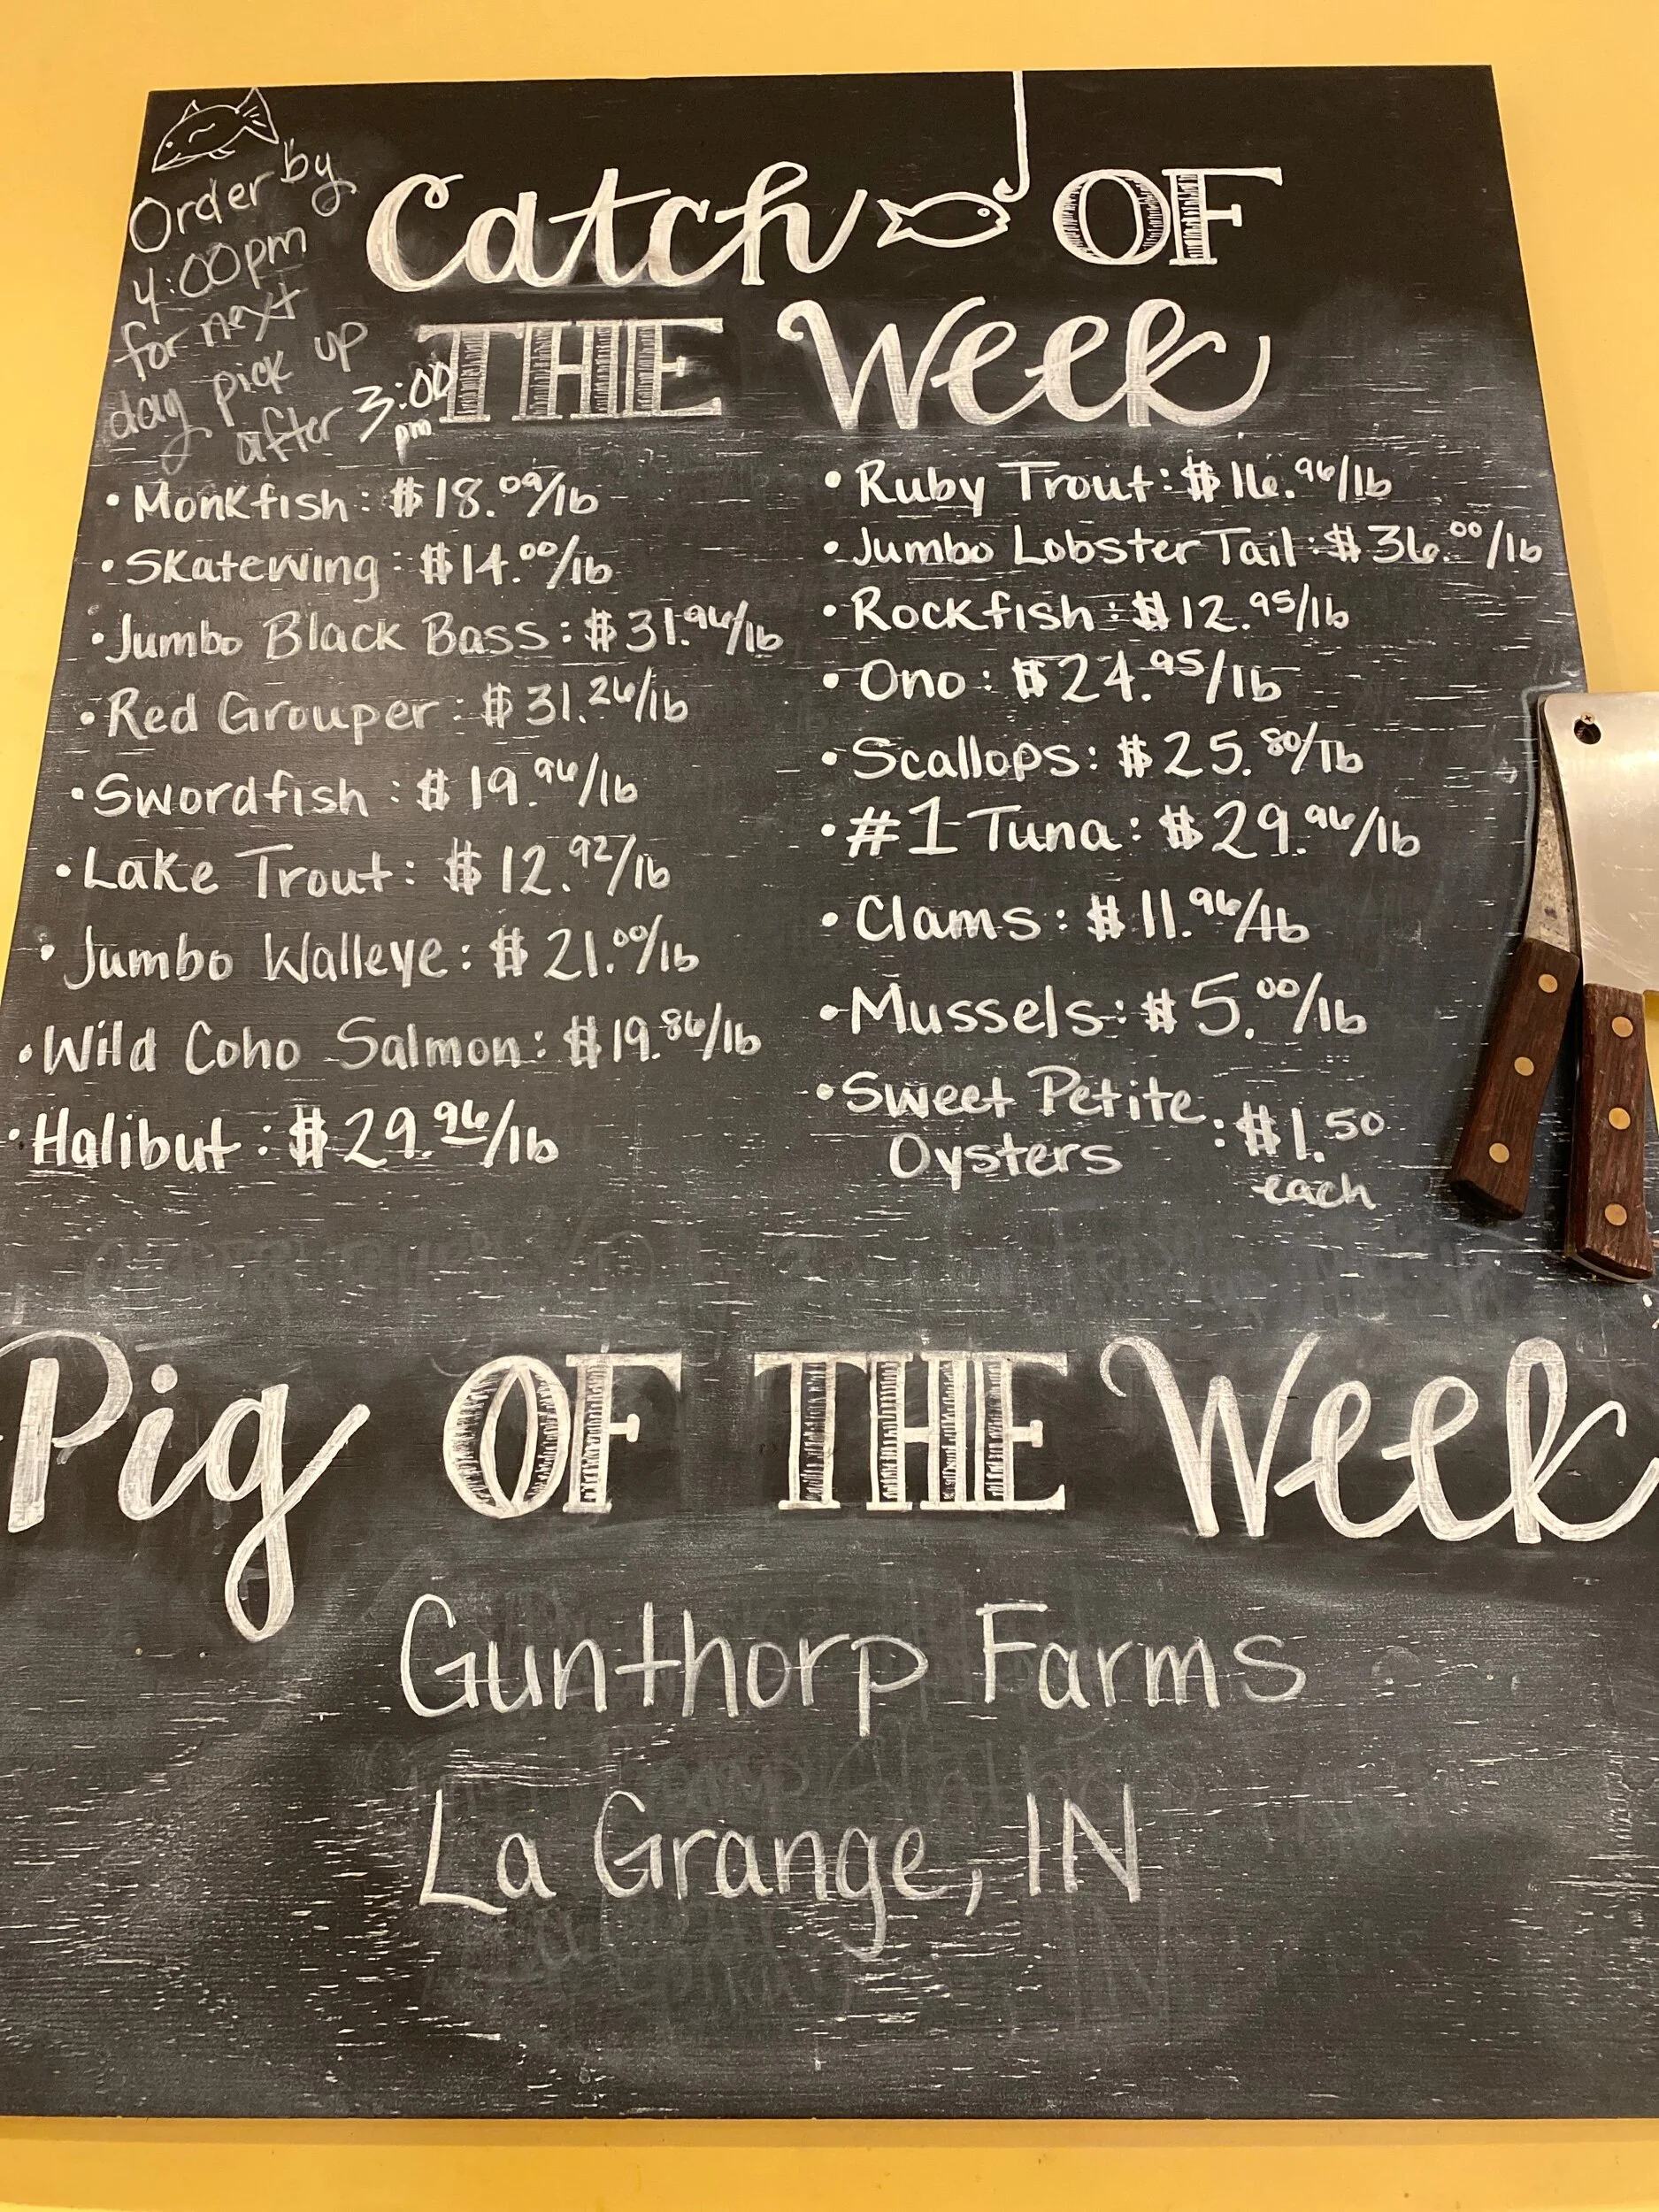 Order by
4:00pm
for next
day pick up
after 3:00
pm
Catch OF
THE Week
• Monkfish: $18.09/lb
• Skatewing: $14.00/lb
• Jumbo Black Bass: $31.96/lb
• Red Grouper: $31.26/lb
• Swordfish: $19.96/lb
• Lake Trout: $12.92/lb
• Jumbo Walleye: $21.00/lb
• Wild Coho Salmon: $19.86/lb
• Halibut: $29.96/lb
• Ruby Trout: $16.96/lb
• Jumbo Lobster Tail: $36.00/lb
• Rockfish: $12.95/lb
• Ono: $24.95/lb
• Scallops: $25.80/lb
• #1 Tuna: $29.96/lb
• Clams: $11.96/lb
• Mussels: $5.00/lb
• Sweet Petite
Oysters: $1.50
each
Pig OF THE Week
Gunthorp Farms
La Grange, IN